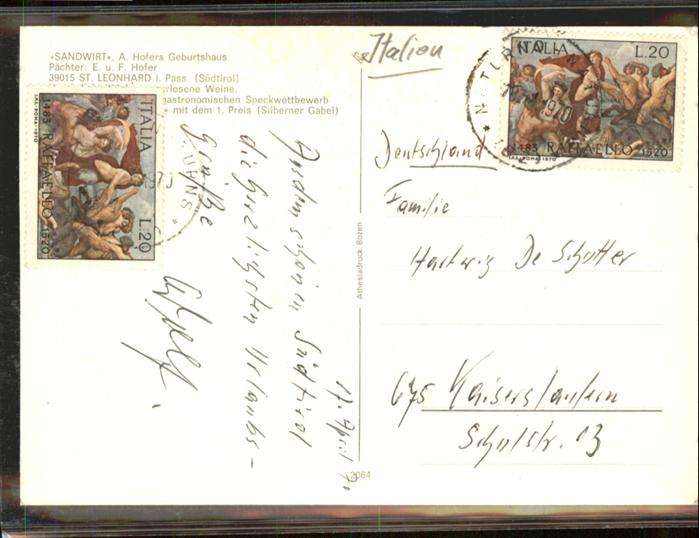 »SANDWIRT«, A. Hofers Geburtshaus
Pächter: E. u. F. Hofer
39015 ST. LEONHARD i. Pass. (Südtirol)
rlosene Weine.
gastronomischen Speckwettbewerb
mit dem 1. Preis (Silberner Gabel)
ITALIA
L.20
1483 RAFFAELLO 1520
I.P.S. ROMA 1970
ITALIA
L.20
1483 RAFFAELLO 1520
Italien
Deutschland
Familie
Hartwig De Schutter
675 Kaiserslautern
Schulstr. 13
17. April 70
Aus dem schönen Südtirol
die herzlichsten Urlaubs-
Grüße
Athesiadruck Bozen
2064